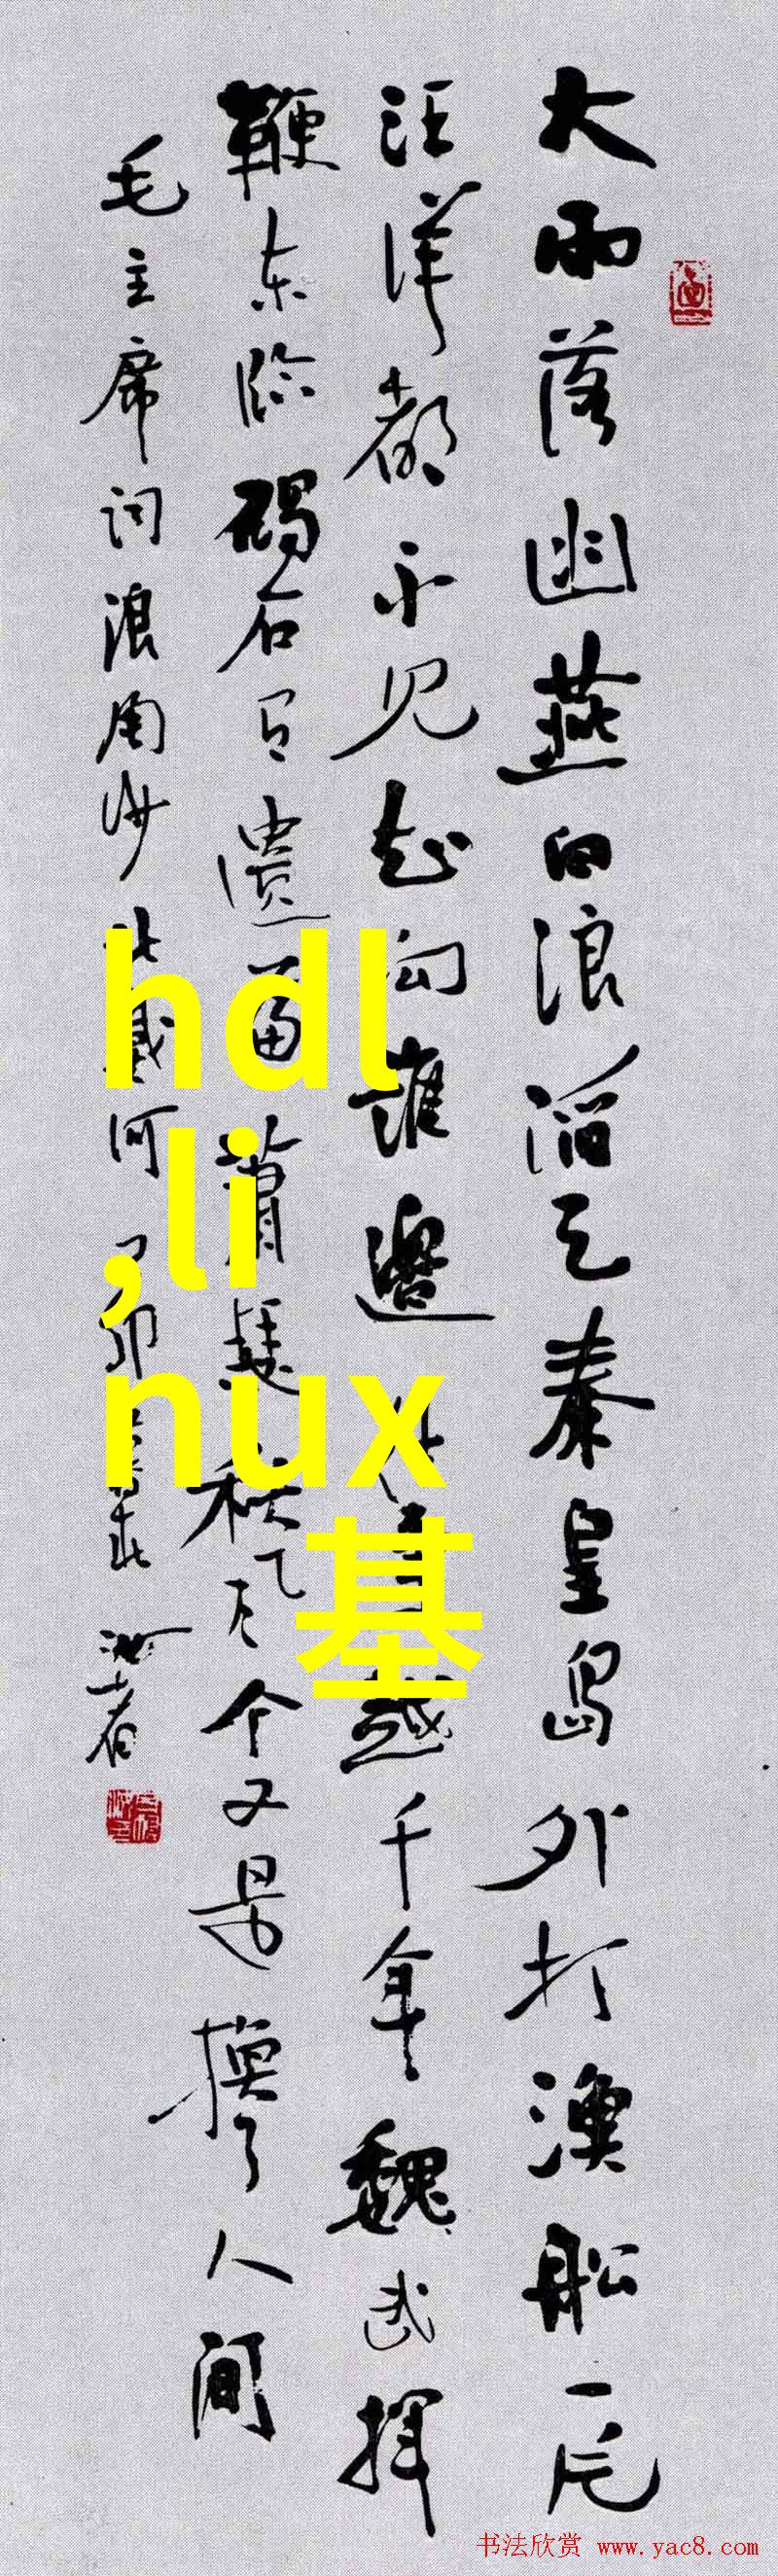 大雨落幽燕白浪滔天秦皇島外打漁船一片
汪洋都不见知向誰邊往事越千年魏武揮
鞭东临碣石有遺篇蕭瑟秋风今又是換了人間
毛主席词浪淘沙北戴河
hdl
,li
nux
基
书法欣赏 www.yac8.com